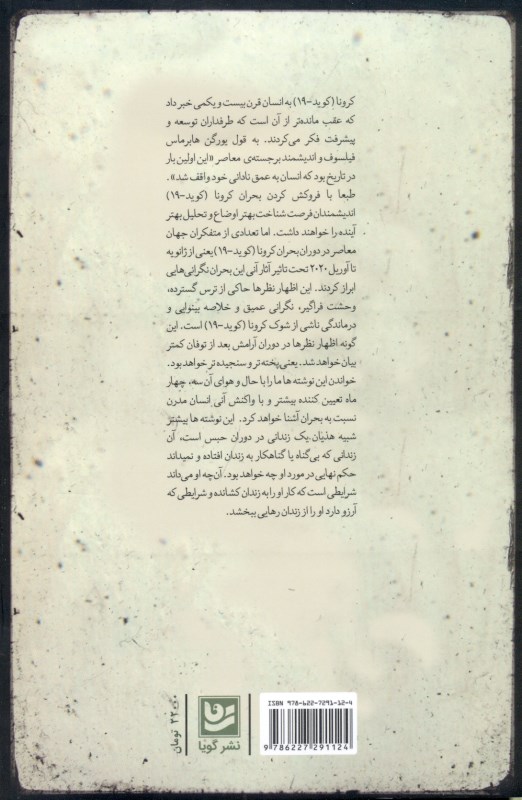 کرونا (کوید-۱۹) به انسان قرن بیست و یکمی خبر داد
که عقب مانده‌تر از آن است که طرفداران توسعه و
پیشرفت فکر می‌کردند. به قول یورگن هابرماس
فیلسوف و اندیشمند برجسته‌ی معاصر «این اولین بار
در تاریخ بود که انسان به عمق نادانی خود واقف شد».
طبعا با فروکش کردن بحران کرونا (کوید-۱۹)
اندیشمندان فرصت شناخت بهتر اوضاع و تحلیل بهتر
آینده را خواهند داشت. اما تعدادی از متفکران جهان
معاصر در دوران بحران کرونا (کوید-۱۹) یعنی از ژانویه
تا آوریل ۲۰۲۰ تحت تاثیر آثار آنی این بحران نگرانی‌هایی
ابراز کردند. این اظهار نظرها حاکی از ترس گسترده،
وحشت فراگیر، نگرانی عمیق و خلاصه بینوایی و
درماندگی ناشی از شوک کرونا (کوید-۱۹) است. این
گونه اظهار نظرها در دوران آرامش بعد از توفان کمتر
بیان خواهد شد. یعنی پخته تر و سنجیده تر خواهد بود.
خواندن این نوشته ها ما را با حال و هوای آن سه، چهار
ماه تعیین کننده بیشتر و با واکنش آنی انسان مدرن
نسبت به بحران آشنا خواهد کرد. این نوشته ها بیشتر
شبیه هذیان یک زندانی در دوران حبس است، آن
زندانی که بی‌گناه یا گناهکار به زندان افتاده و نمیداند
حکم نهایی در مورد او چه خواهد بود. آن‌چه او می‌داند
شرایطی است که کار او را به زندان کشانده و شرایطی که
آرزو دارد او را از زندان رهایی ببخشد.
ISBN 978-622-7291-12-4
9 786227 291124
نشر گویا
۲۲۰۰۰ تومان